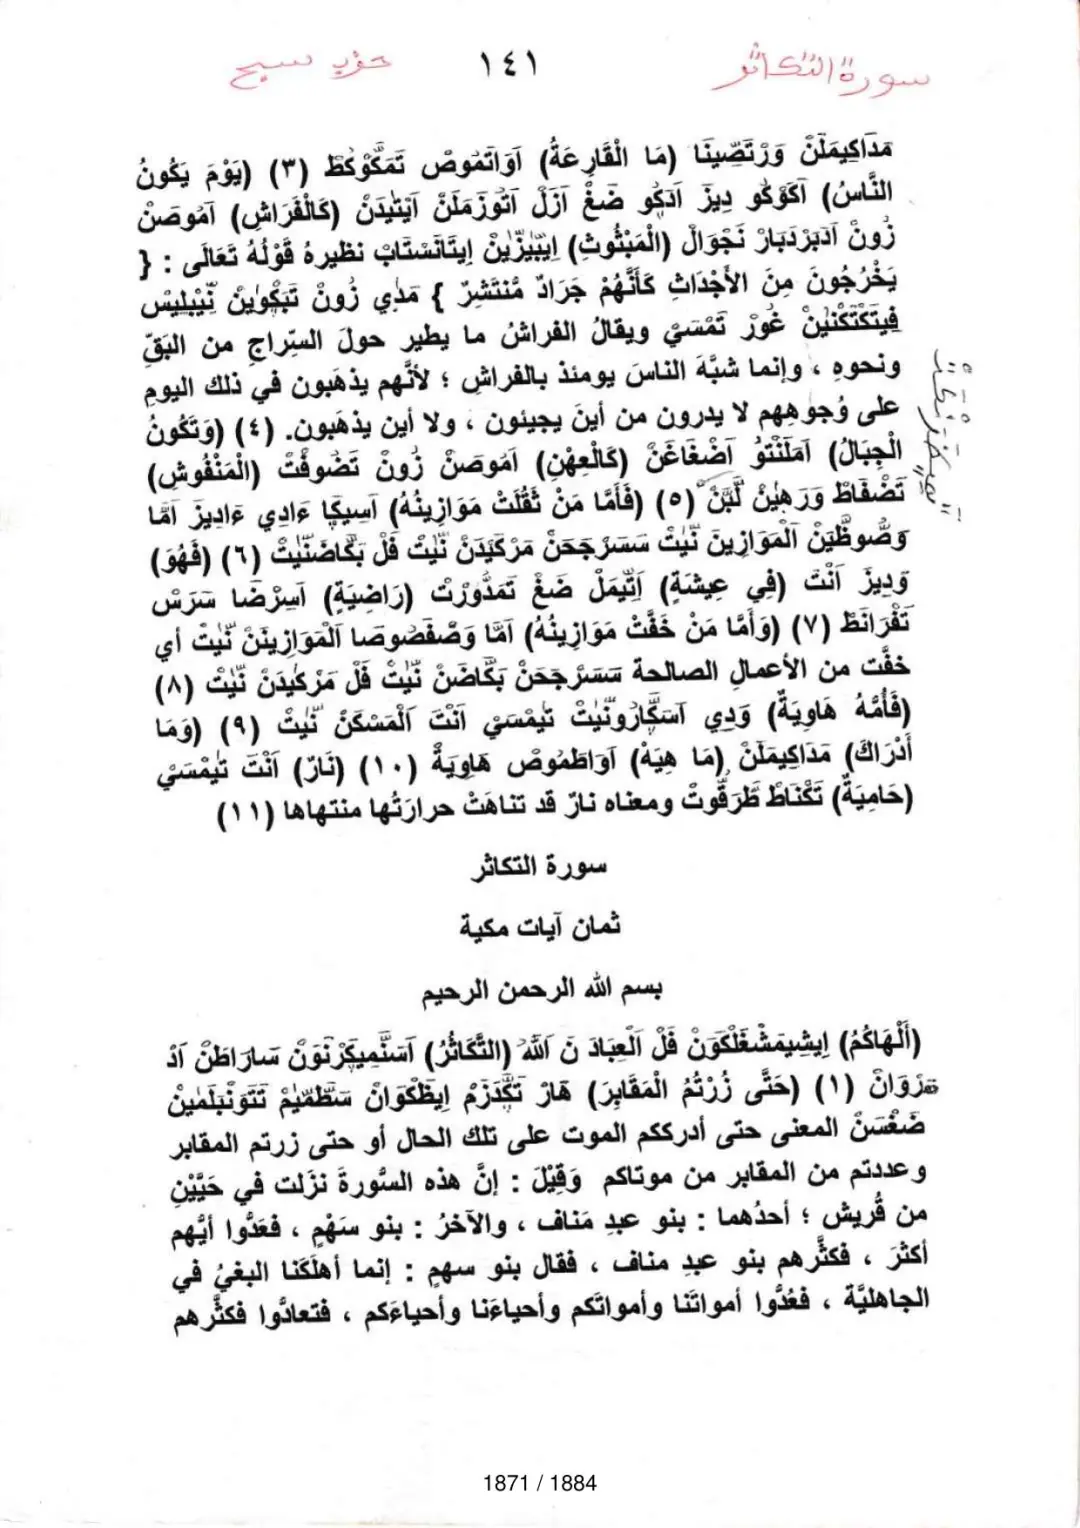 سورة التكاثر ١٤١ حزب سبح
مَدَاكِيمَلَنْ وَرْتَصِّينَا (مَا الْقَارِعَةُ) آوَاتَمُوصْ تَمَكُّوكَطْ (٣) (يَوْمَ يَكُونُ
النَّاسُ) آكَوَكُو دِيزَ آدَكُو ضَغْ آزَلْ آتُوزَمَلَنْ آيَتِيدَنْ (كَالْفَرَاشِ) آمُوصَنْ
زُونْ آدَبَرْدَبَارْ نَجْوَالْ (الْمَبْثُوثِ) إِيَبِيزِّيَنْ إِيتَانَسْتَابْ نظيره قَوْلُهُ تَعَالَى : {
يَخْرُجُونَ مِنَ الأَجْدَاثِ كَأَنَّهُمْ جَرَادٌ مُّنتَشِرٌ } مَدِي زُونْ تَبَكْوِينْ نَيِبْلِيسْ
فِيتَكْتَكْنِينْ غُورْ تَمْسَيْ ويقالُ الفراشُ ما يطير حولَ السِّراجِ من البَقِّ
ونحوهِ ، وإنما شبَّهَ الناسَ يومئذ بالفراشِ ؛ لأنَّهم يذهَبون في ذلك اليومِ
على وُجوهِهم لا يدرون من أينَ يجيئون ، ولا أين يذهَبون. (٤) (وَتَكُونُ
الْجِبَالُ) آمَلَنْتَوُ آضْغَاغَنْ (كَالْعِهْنِ) آمُوصَنْ زُونْ تَضُوفْتْ (الْمَنْفُوشِ)
تَضْفَاطْ وَرَهِينْ لَبَّنْ (٥) (فَأَمَّا مَنْ ثَقُلَتْ مَوَازِينُهُ) آسِيكَا ءَادِي ءَادِيزَ آمَّا
وَصُّوظَّيَنْ آلْمَوَازِينَ نَّيِتْ سَسَرْجَحَنْ مَرْكَيْدَنْ نَّيِتْ فَلْ بَكَّاضَنَّيِتْ (٦) (فَهُوَ)
وَدِيزَ آنْتَ (فِي عِيشَةٍ) آتِيمَلْ ضَغْ تَمَدُّورْت (رَاضِيَةٍ) آسِرْضَا سَرَسْ
تَفْرَانَطْ (٧) (وَأَمَّا مَنْ خَفَّتْ مَوَازِينُهُ) آمَّا وَصَّفْصُوصَا آلْمَوَازِينَنْ نَّيِتْ أي
خفَّت من الأعمالِ الصالحة سَسَرْجَحَنْ بَكَّاضَنْ نَّيِتْ فَلْ مَرْكَيْدَنْ نَّيِتْ (٨)
(فَأُمُّهُ هَاوِيَةٌ) وَدِي آسَكَّارُونَّيِتْ تَيِمْسَيْ آنْتَ آلْمَسْكَنْ نَّيِتْ (٩) (وَمَا
أَدْرَاكَ) مَدَاكِيمَلَنْ (مَا هِيَهْ) آوَاطَمُوصْ هَاوِيَةٌ (١٠) (نَارٌ) آنْتَ تَيِمْسَيْ
(حَامِيَةٌ) تَكْنَاطْ طَّرَقُّوتْ ومعناه نارٌ قد تناهَتْ حرارتُها منتهاها (١١)
سورة التكاثر
ثمان آيات مكية
بسم الله الرحمن الرحيم
(أَلْهَاكُمُ) إِيشِيمَشْغَلْكَوَنْ فَلْ آلْعِبَادَ نَ آللهْ (التَّكَاثُرُ) آسَنَّمِيكِرْنَوَنْ سَارَاطَنْ آدْ
هَرْوَانْ (١) (حَتَّى زُرْتُمُ الْمَقَابِرَ) هَارْ تَكَّدَزَمْ إِيظَكْوَانْ سَطَّمِّيَمْ تَتَوَنْبَلَمِينْ
ضَغْسَنْ المعنى حتى أدرككم الموت على تلك الحال أو حتى زرتم المقابر
وعددتم من المقابر من موتاكم وَقِيْلَ : إنَّ هذه السُّورةَ نزَلت في حَيَّيْنِ
من قُريش ؛ أحدُهما : بنو عبدِ مَناف ، والآخرُ : بنو سَهْمٍ ، فعَدُّوا أيُّهم
أكثرَ ، فكثَّرهم بنو عبدِ مناف ، فقال بنو سهمٍ : إنما أهلَكَنا البغيُ في
الجاهليَّة ، فعُدُّوا أمواتَنا وأمواتَكم وأحياءَنا وأحياءَكم ، فتعادُّوا فكثَّرهم
1871 / 1884